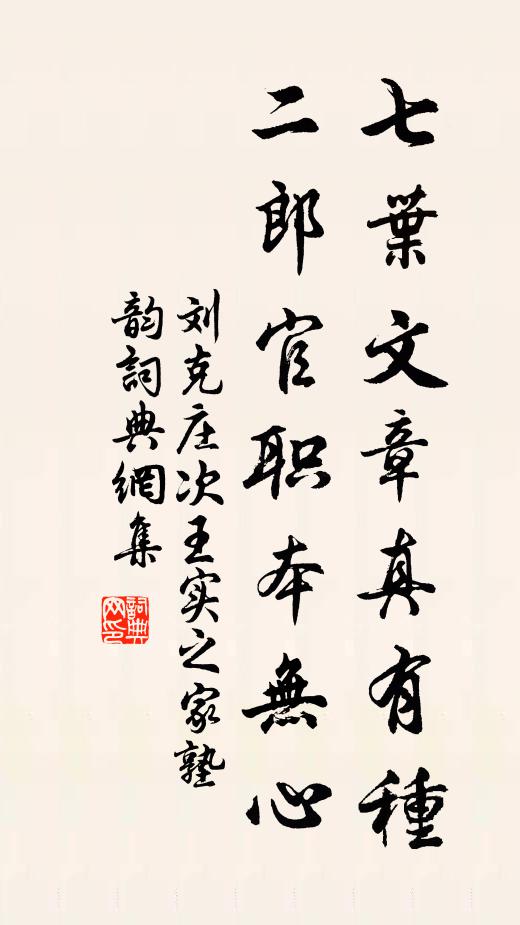 七葉文章真有種
二郎官职本無心
刘克庄次王实之家塾
韵詞典網集
詞典网印